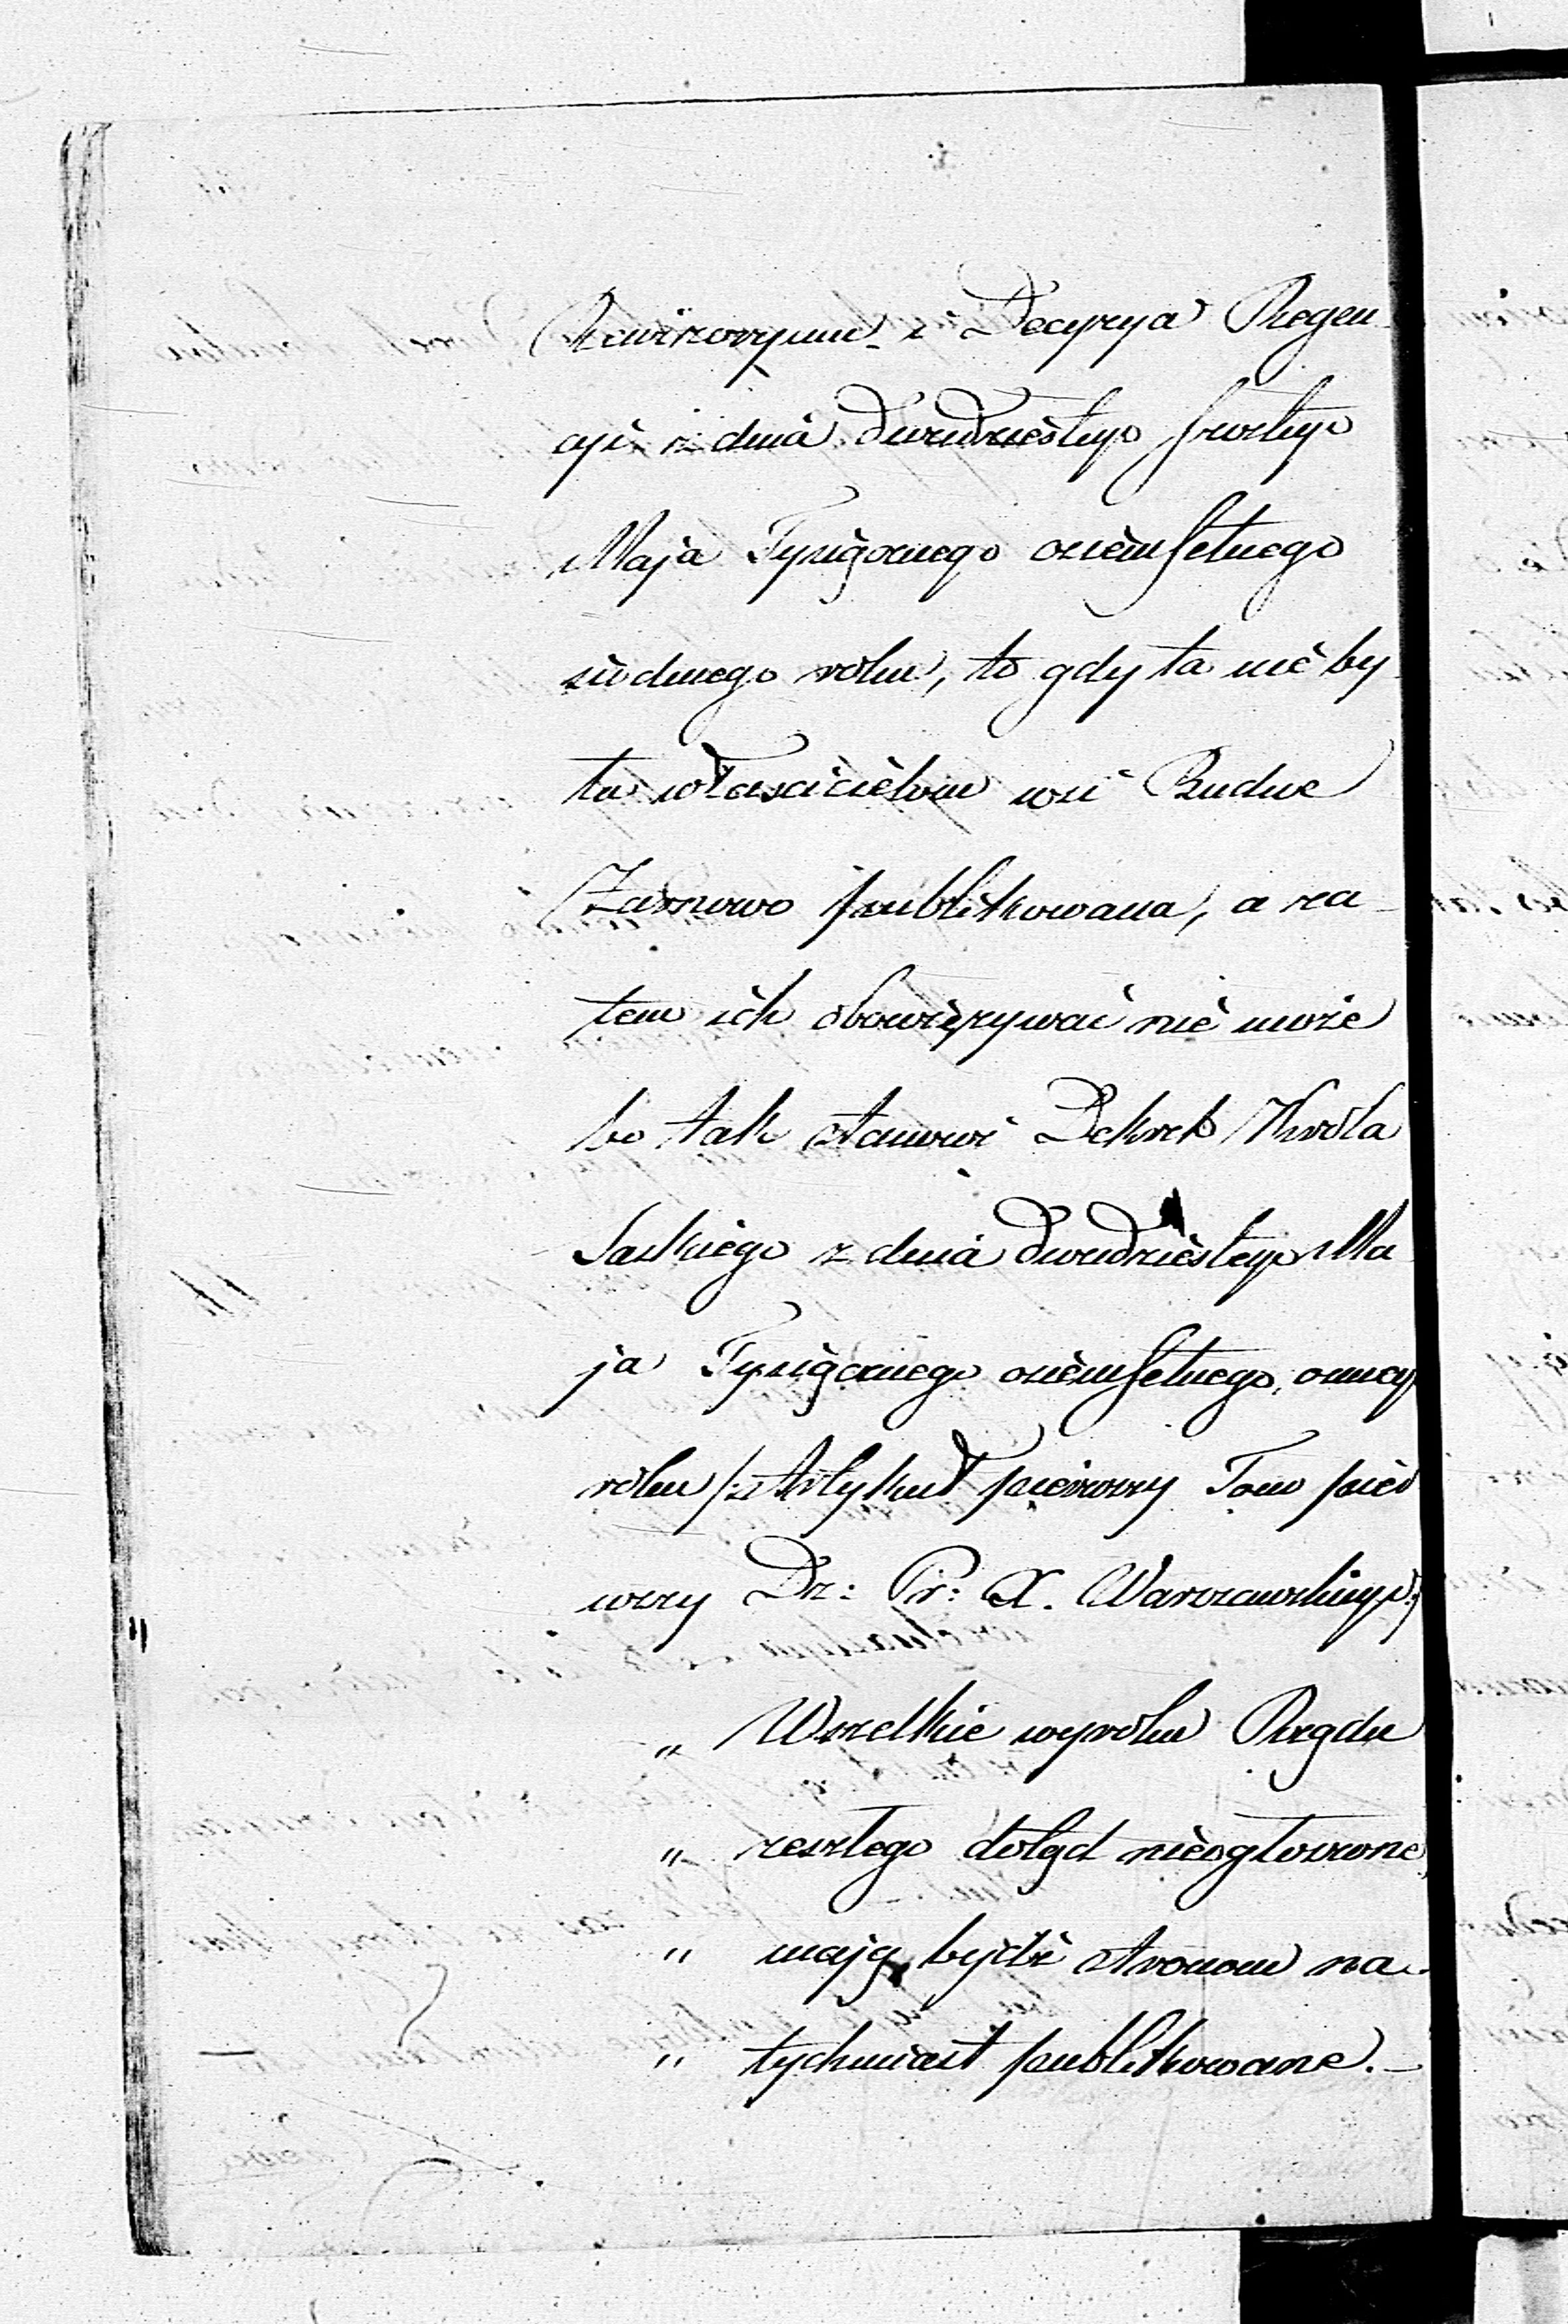 Rewizoryum i Decyzya Regen-
cyi z dnia dwudziestego szóstego
Maja Tysiącznego ośiemsetnego
siódmego roku, to gdy ta nie by-
ła właścicielom wsi Rudne
Żarnowo publikowana, a za-
tem ich obowięzywać nie może
bo tak stanowi Dekret Króla
Saskiego z dnia dwudziestego Ma
ja Tysiącznego ośiemsetnego, osmego
roku /: Artykuł pierwszy Tom pier
wszy Dz: Pr: X. Warszawskiego:/
„ Wszelkie wyroku Rządu
„ zeszłego dotąd nieogłoszone,
„ mają bydź stronom na-
„ tychmiast publikowane. –